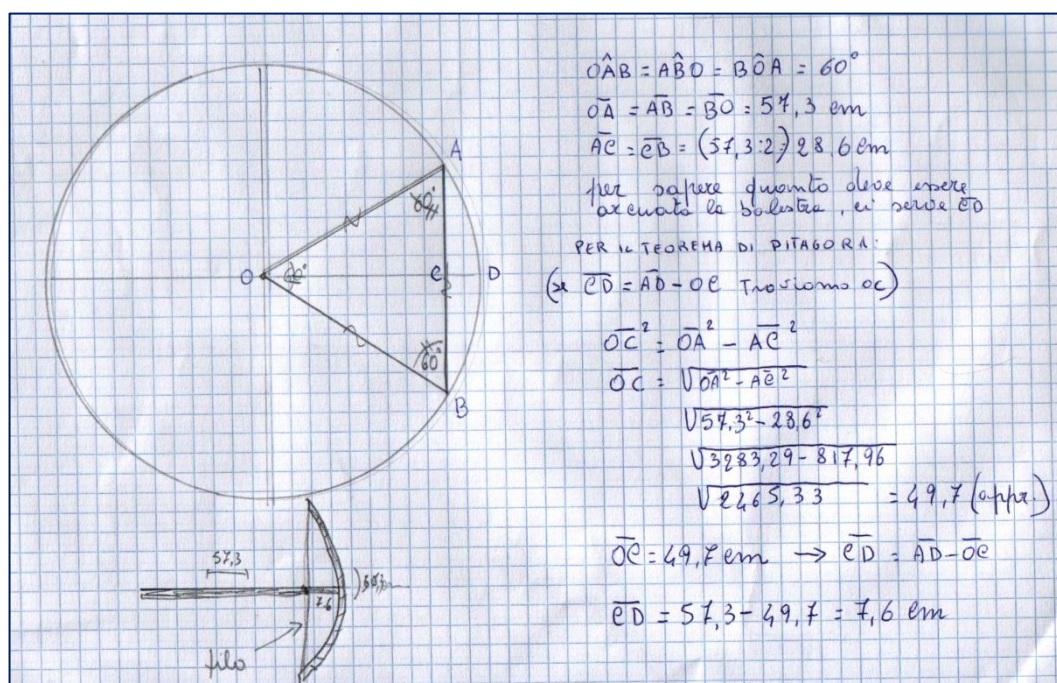 OÂB = AB̂O = BÔA = 60°
O̅A̅ = A̅B̅ = B̅O̅ = 57,3 cm
A̅C̅ = C̅B̅ = (57,3:2=) 28,6 cm
per sapere quanto deve essere
arcuata la balestra, ci serve C̅D̅
PER IL TEOREMA DI PITAGORA:
(se C̅D̅ = A̅D̅ - OC troviamo OC)
O̅C̅² = O̅A̅² - A̅C̅²
O̅C̅ = √O̅A̅² - A̅C̅²
√57,3² - 28,6²
√3283,29 - 817,96
√2465,33 = 49,7 (appr.)
O̅C̅ = 49,7 cm → C̅D̅ = A̅D̅ - O̅C̅
C̅D̅ = 57,3 - 49,7 = 7,6 cm
A
60°
O
60°
C
D
60°
B
57,3
7,6
filo